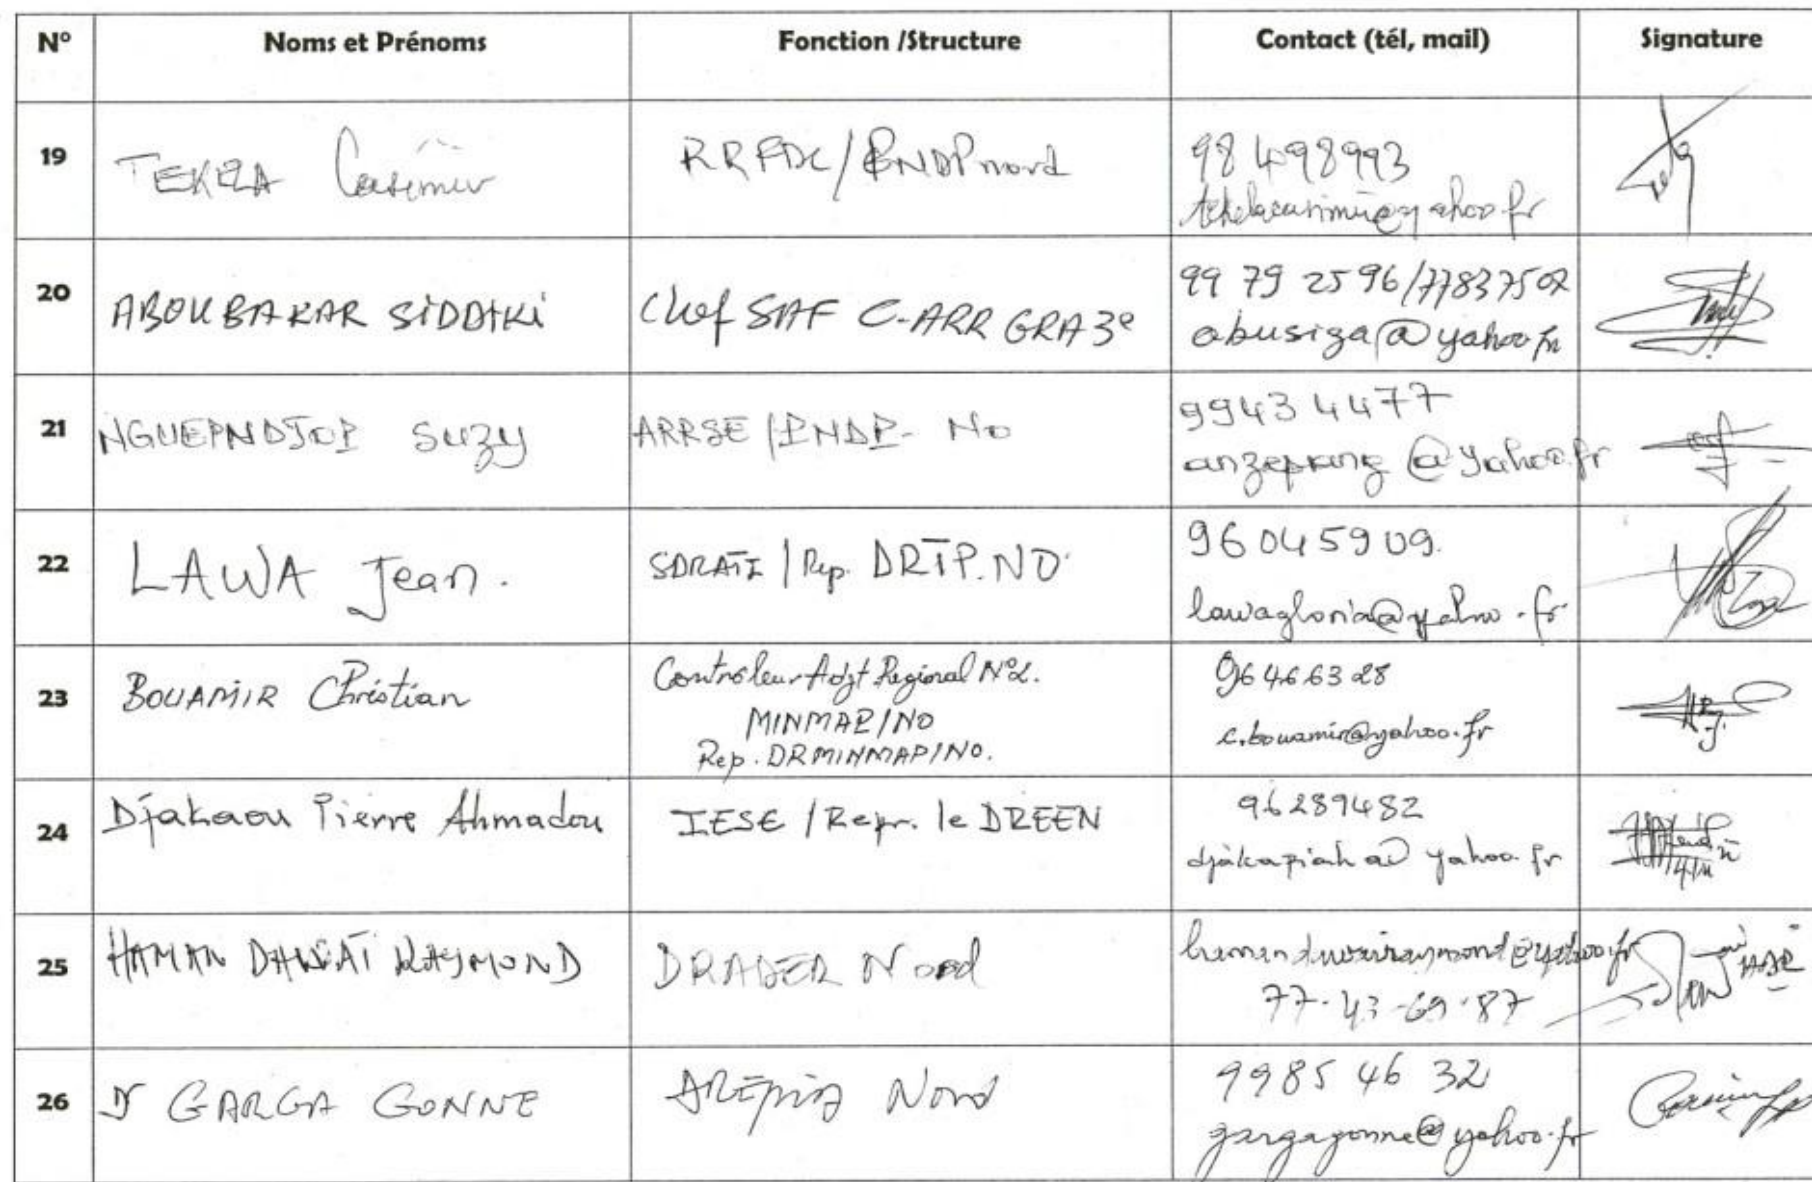 N° Noms et Prénoms Fonction /Structure Contact (tél, mail) Signature
19 TEKELA Casimir RRFDC/PNDP nord 98 498993
tekelacasimir@yahoo.fr
20 ABOUBAKAR SIDDIKI Chef SAF C-ARR GRA 3e 99 79 25 96/77837502
abusiga@yahoo.fr
21 NGUEPNDJOP Suzy ARRSE/PNDP-NO 9943 4477
@yahoo.fr
22 LAWA Jean. SDRATI / Rep. DRTP.NO 96 04 59 09.
lawagloria@yahoo.fr
23 BOUAMIR Christian Contrôleur Adjt Régional N°2. 96 46 63 28
MINMAP/NO c.bouamir@yahoo.fr
Rep. DRMINMAP/NO.
24 Djakaou Pierre Ahmadou IESE / Repr. le DREEN 96289482
djakapiah@yahoo.fr
25 HAMAN RAYMOND DRADER Nord @yahoo.fr
77-43-69-87
26 Dr GARGA GONNE Nord 9985 46 32
gargagonne@yahoo.fr